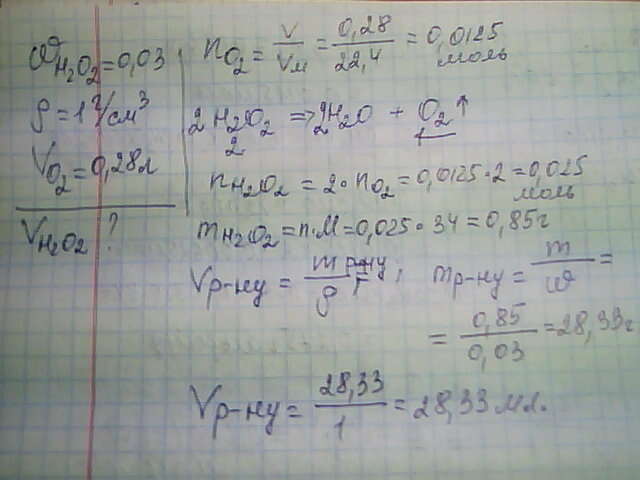 ωH₂O₂ = 0,03
ρ = 1 г/см³
VO₂ = 0,28л
VH₂O₂ ?
nO₂ = V/Vм = 0,28/22,4 = 0,0125 моль
2H₂O₂ => 2H₂O + O₂↑
2 1
nH₂O₂ = 2·nO₂ = 0,0125·2 = 0,025 моль
mH₂O₂ = n·M = 0,025·34 = 0,85г
Vр-ну = mр-ну/ρ ; mр-ну = m/ω =
= 0,85/0,03 = 28,33г
Vр-ну = 28,33/1 = 28,33 мл.